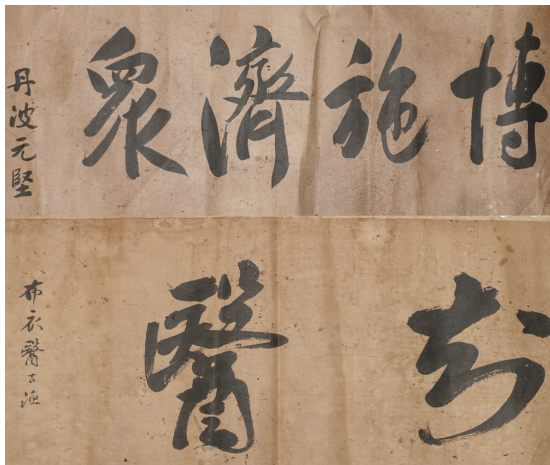 博施濟衆
丹波元堅
醫
布衣醫